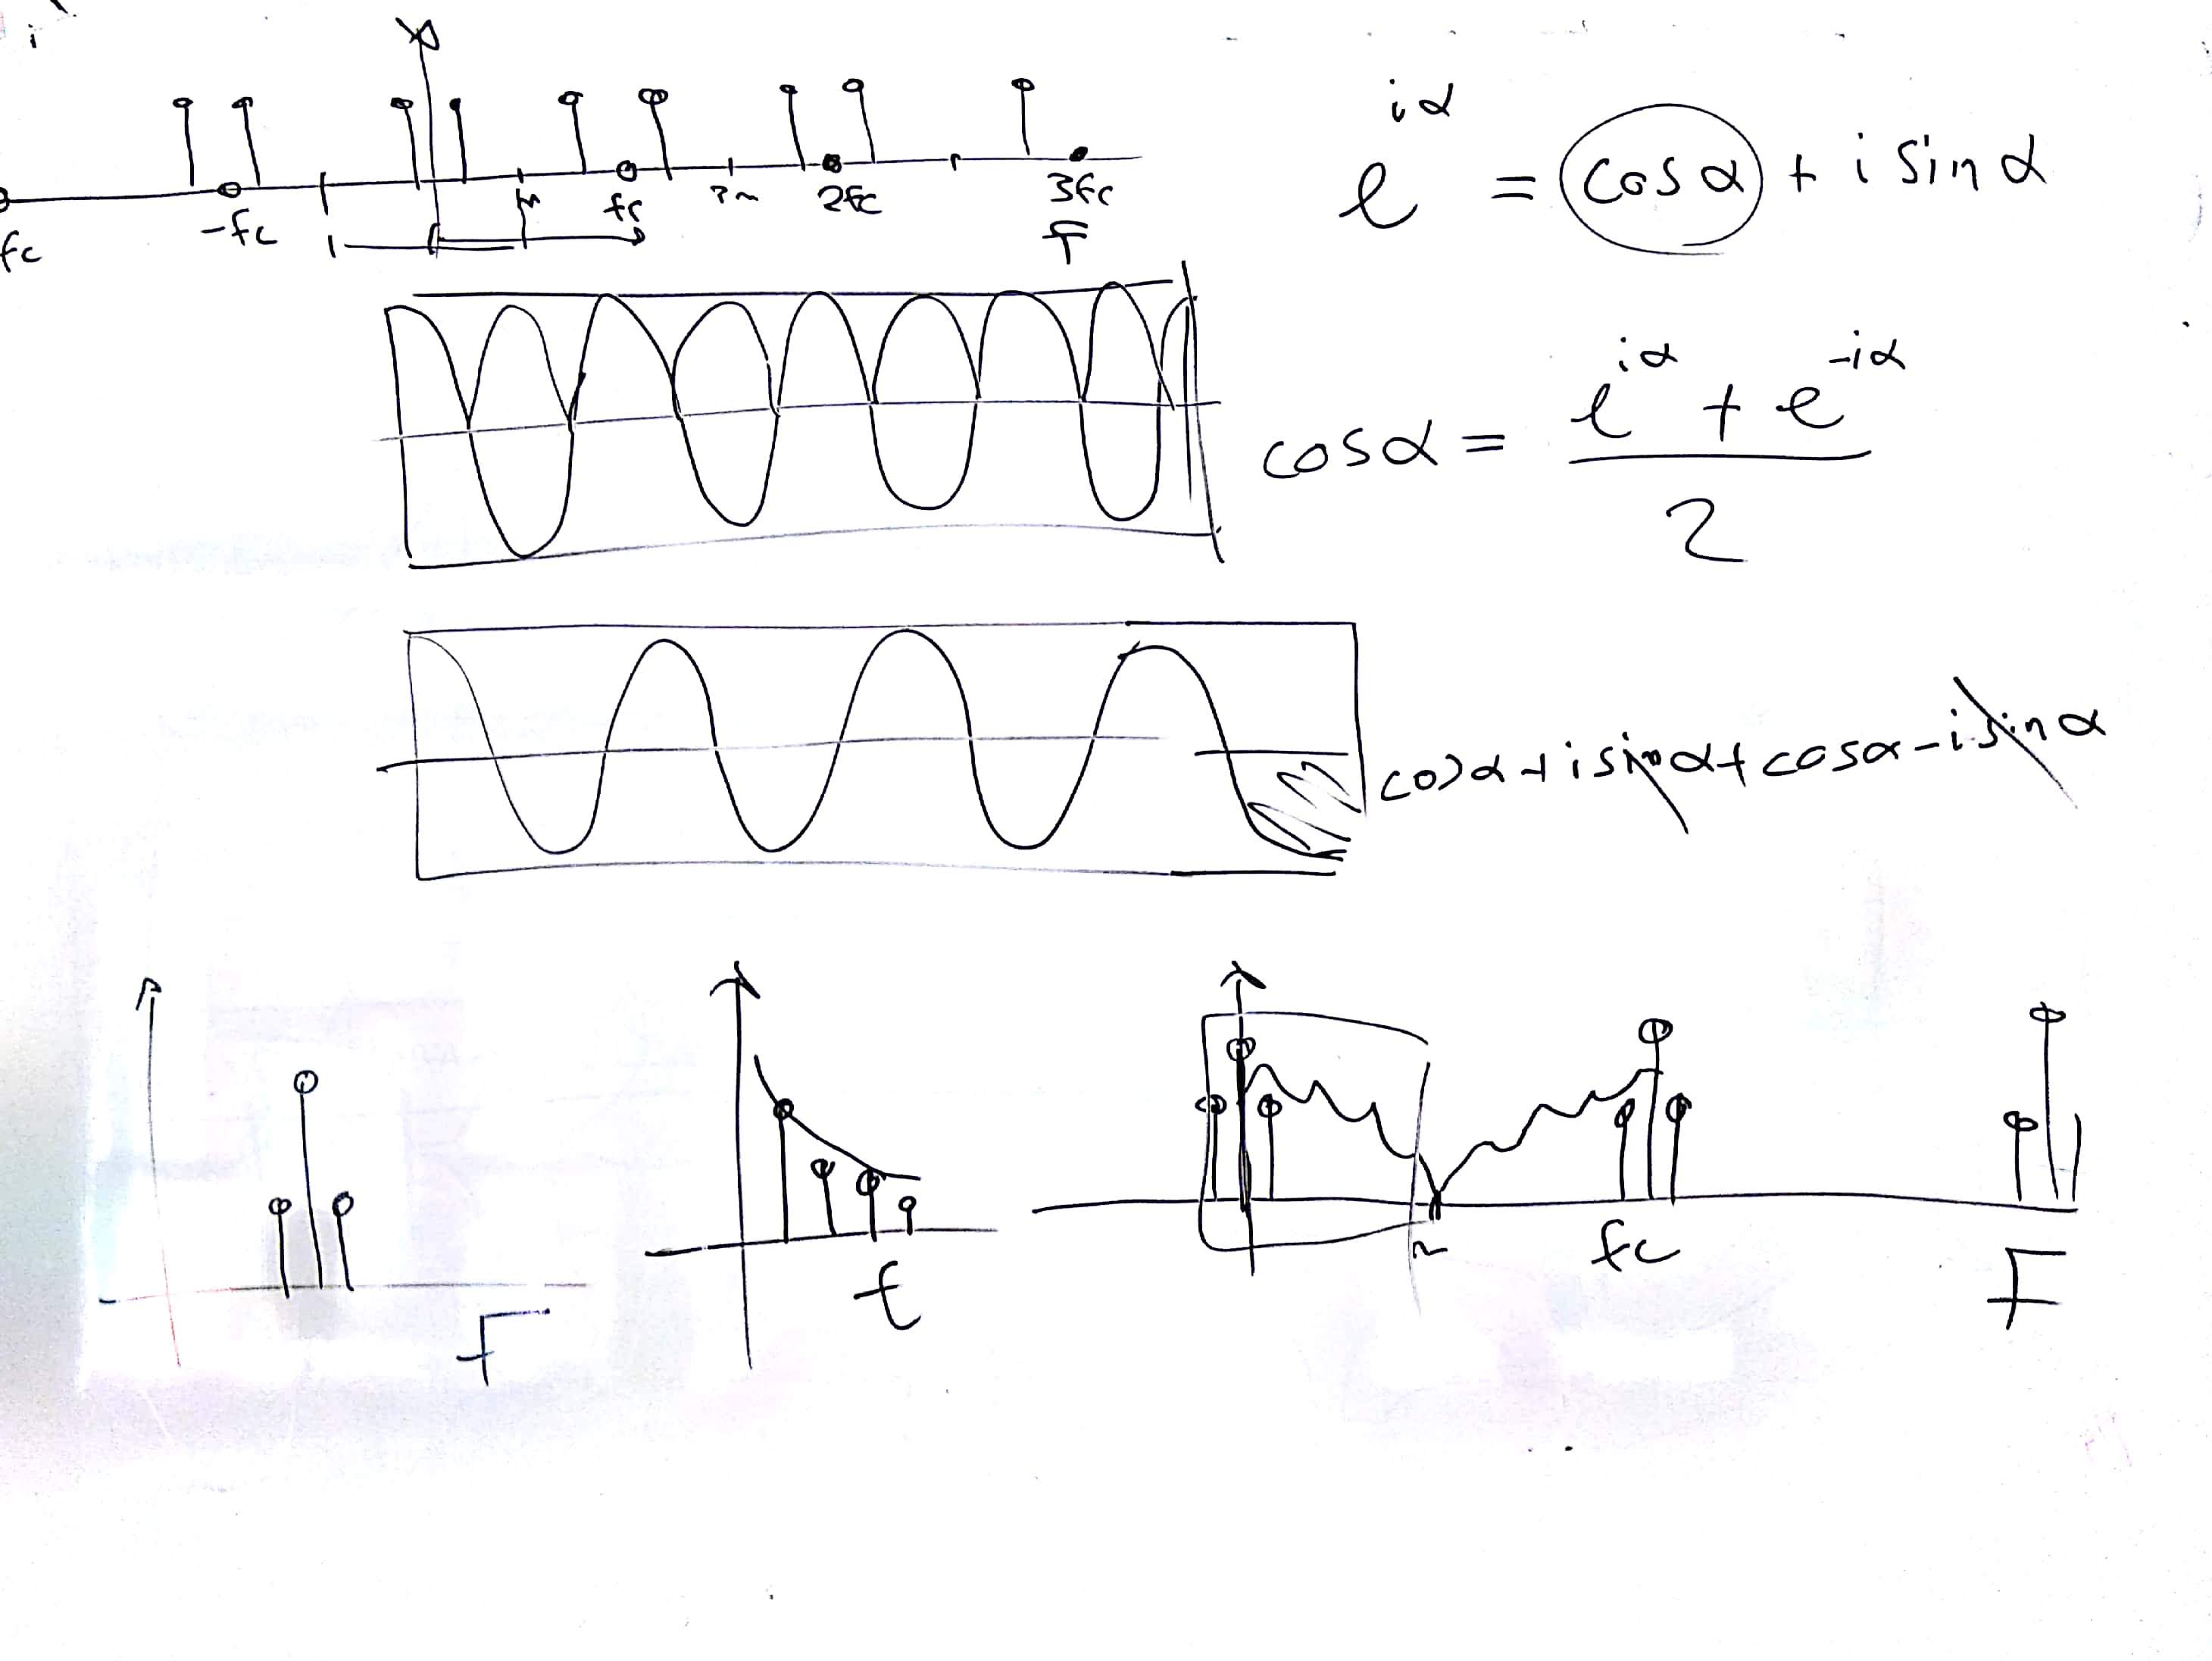 -fc fc 2fc 3fc
fc
F
e^{iα} = cos α + i sin α
cos α = \frac{e^{iα} + e^{-iα}}{2}
cos α + i sin α + cos α - i sin α
F
t
fc
F